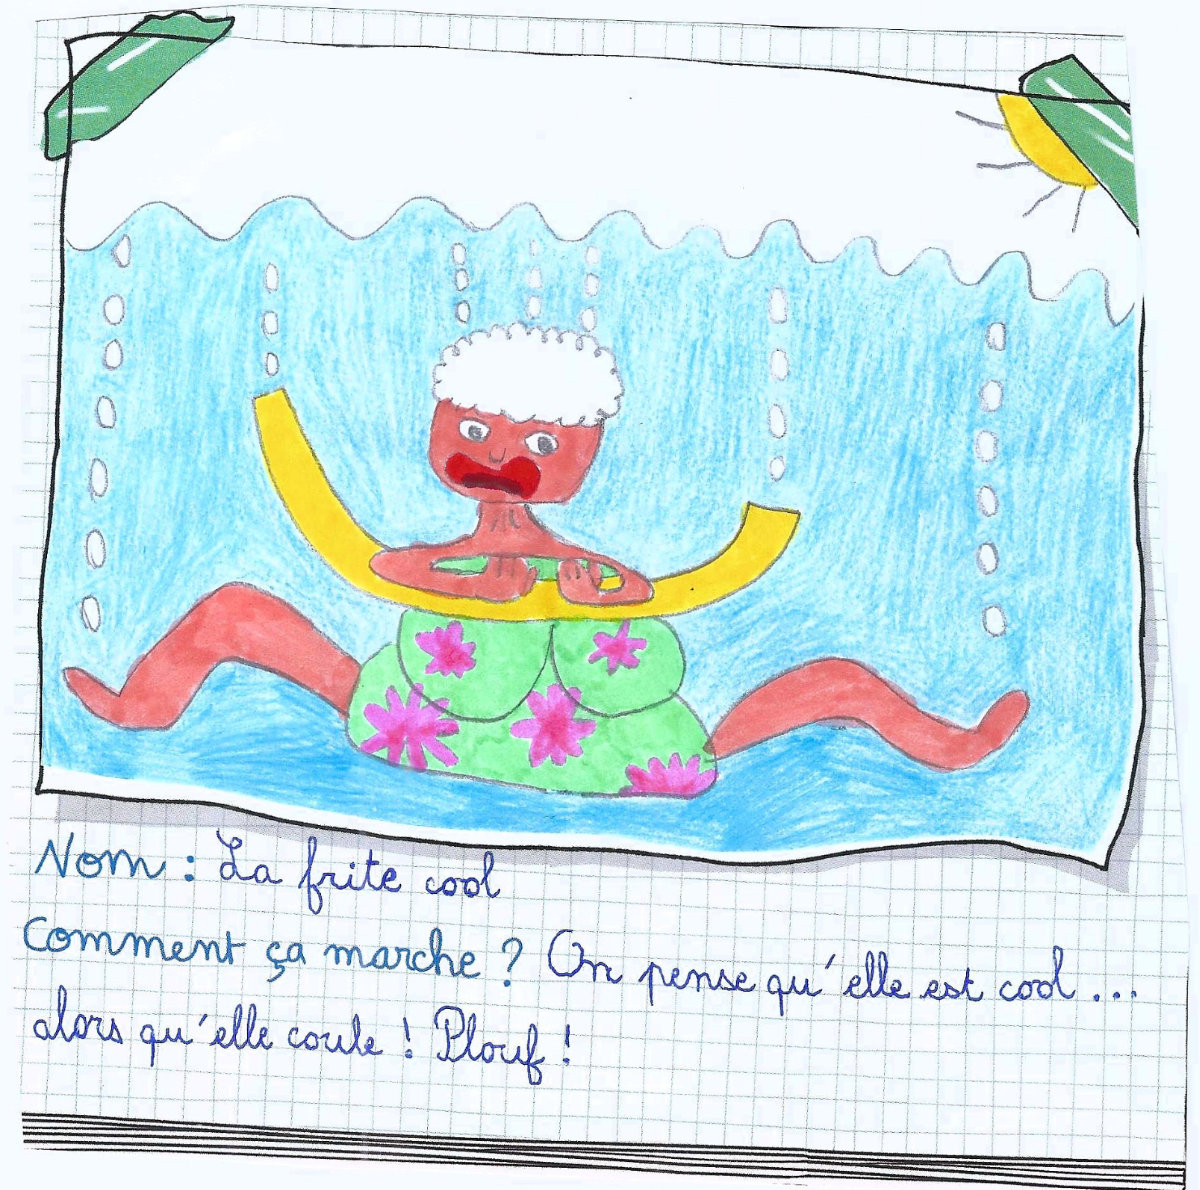 Nom : La frite cool
Comment ça marche ? On pense qu'elle est cool...
alors qu'elle coule ! Plouf !